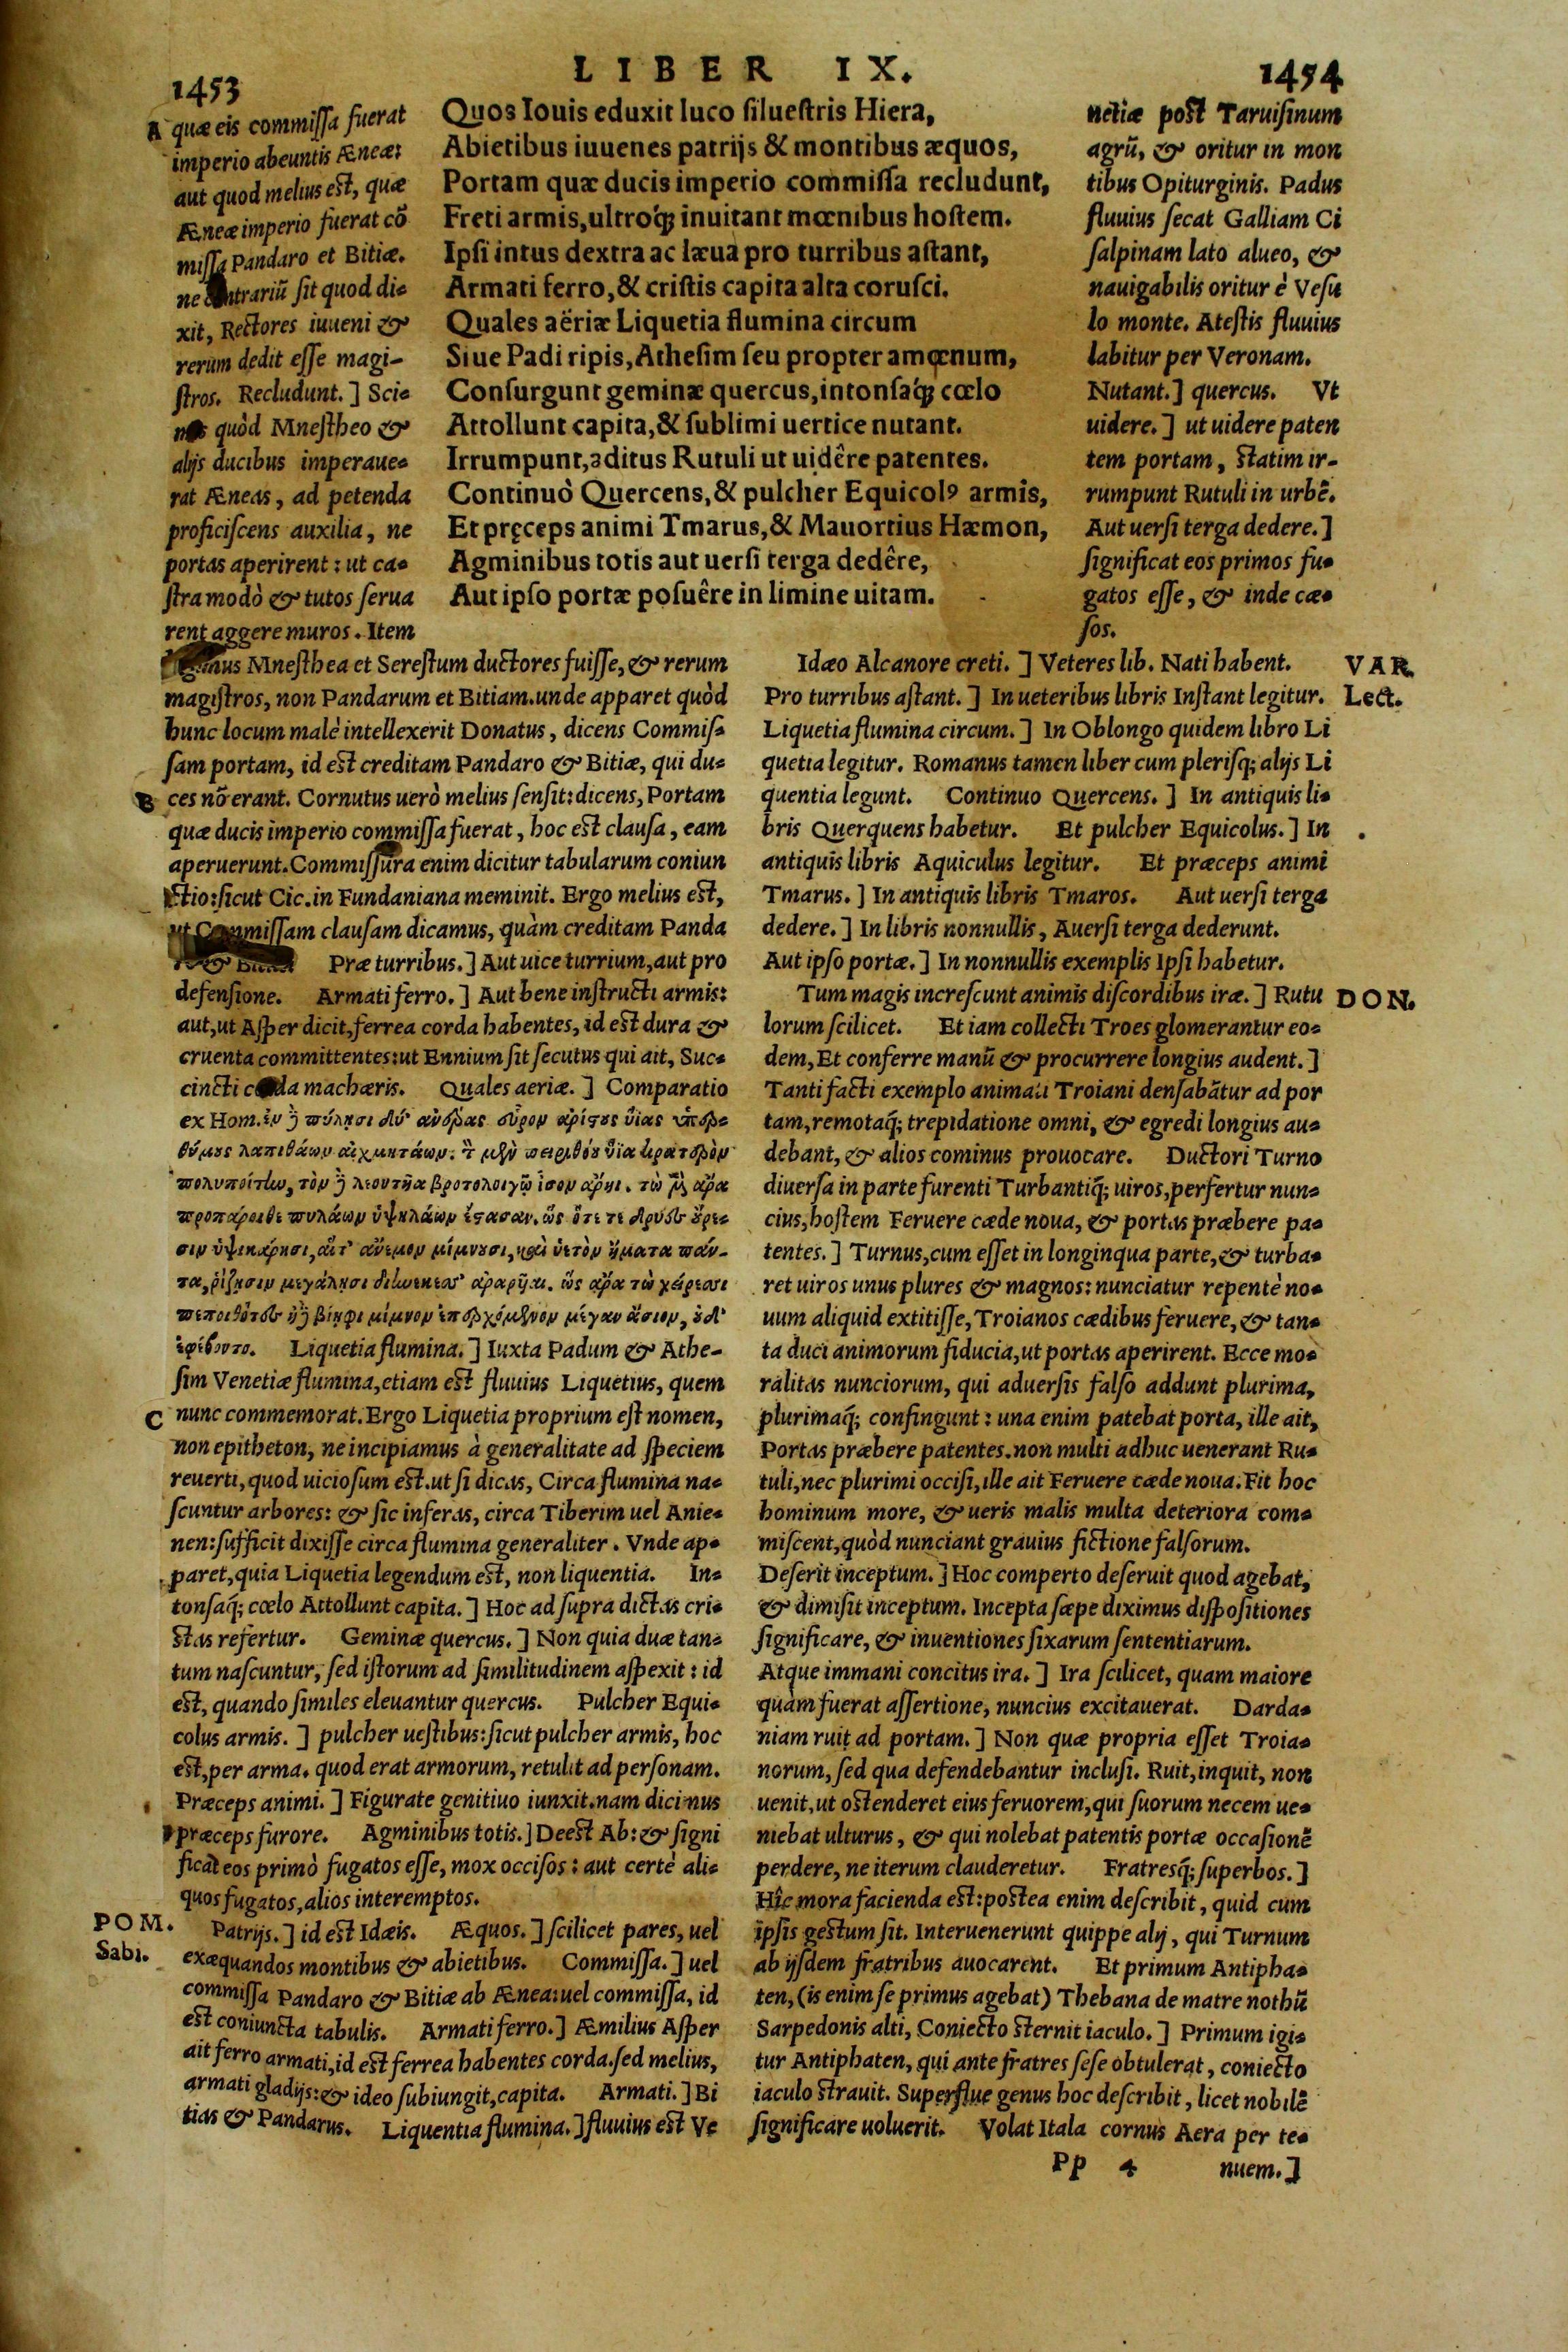 1453
LIBER IX.
1454
A quæ eis commiſſa fuerat
imperio abeuntis Æneæ:
aut quod melius eſt, quæ
Æneæ imperio fuerat cõ
miſſa Pandaro et Bitiæ.
ne contrariũ ſit quod di-
xit, Rectores iuueni &
rerum dedit eſſe magi-
ſtros. Recludunt.] Sci-
mus quòd Mneſtheo &
alijs ducibus imperaue-
rat Æneas, ad petenda
proficiſcens auxilia, ne
portas aperirent: ut ca-
ſtra modò & tutos ſerua
rent aggere muros. Item
Quos Iouis eduxit luco ſilueſtris Hiera,
Abietibus iuuenes patrijs & montibus æquos,
Portam quæ ducis imperio commiſſa recludunt,
Freti armis, ultroq́; inuitant mœnibus hoſtem.
Ipſi intus dextra ac læua pro turribus aſtant,
Armati ferro, & criſtis capita alta coruſci.
Quales aëriæ Liquetia flumina circum
Siue Padi ripis, Atheſim ſeu propter amœnum,
Conſurgunt geminæ quercus, intonſaq́; cœlo
Attollunt capita, & ſublimi uertice nutant.
Irrumpunt, aditus Rutuli ut uidêre patentes.
Continuò Quercens, & pulcher Equicolꝰ armis,
Et pręceps animi Tmarus, & Mauortius Hæmon,
Agminibus totis aut uerſi terga dedêre,
Aut ipſo portæ poſuêre in limine uitam.
netiæ poſt Taruiſinum
agrũ, & oritur in mon
tibus Opiturginis. Padus
fluuius ſecat Galliam Ci
ſalpinam lato alueo, &
nauigabilis oritur è Veſu
lo monte. Ateſtis fluuius
labitur per Veronam.
Nutant.] quercus. Vt
uidere.] ut uidere paten
tem portam, ſtatim ir-
rumpunt Rutuli in urbẽ.
Aut uerſi terga dedere.]
ſignificat eos primos fu-
gatos eſſe, & inde cæ-
ſos.
Mneſthea et Sereſtum ductores fuiſſe, & rerum
magiſtros, non Pandarum et Bitiam. unde apparet quòd
hunc locum malè intellexerit Donatus, dicens Commiſ-
ſam portam, id eſt creditam Pandaro & Bitiæ, qui du-
B ces nõ erant. Cornutus uerò melius ſenſit: dicens, Portam
quæ ducis imperio commiſſa fuerat, hoc eſt clauſa, eam
aperuerunt. Commiſſura enim dicitur tabularum coniun
ctio: ſicut Cic. in Fundaniana meminit. Ergo melius eſt,
ut Commiſſam clauſam dicamus, quàm creditam Panda
Præ turribus.] Aut uice turrium, aut pro
defenſione. Armati ferro.] Aut bene inſtructi armis:
aut, ut Aſper dicit, ferrea corda habentes, id eſt dura &
cruenta committentes: ut Ennium ſit ſecutus qui ait, Suc-
cincti corda machæris. Quales aeriæ.] Comparatio
ex Hom. ἐν ἢ πύλῃσι δύ' ἀνδρας εὗρον ἀρίστους ὗιας ὑπερ-
θύμους λαπιθάων αἰχμητάων. τ μὲν πειριθόου ὗια κρατερὸν
πολυποίτίω, τὸν ἢ λεοντῆα βροτολοιγῷ ἶσον ἄρηι. τὼ μὲν ἄρα
προπάροιθε πυλάων ὑψηλάων ἕστασαν. ὡς ὅτε τε δρύες ὄρε-
σιν ὑψικάρησι, αἵτ' ἄνεμον μίμνουσι, καὶ ὑετὸν ἤματα πάν-
τα, ῥίζῃσιν μεγάλῃσι διηνεκέεσ' ἀραρῦαι. ὡς ἄρα τὼ χείρεσσι
πεποιθότες ἠδὲ βίηφι μίμνον ἐπερχόμενον μέγαν ἄσιον, ὀδ'
ἐφέβοντο. Liquetia flumina.] Iuxta Padum & Athe-
ſim Venetiæ flumina, etiam eſt fluuius Liquetius, quem
C nunc commemorat. Ergo Liquetia proprium eſt nomen,
non epitheton, ne incipiamus à generalitate ad ſpeciem
reuerti, quod uicioſum eſt. ut ſi dicas, Circa flumina na-
ſcuntur arbores: & ſic inferas, circa Tiberim uel Anie-
nen: ſufficit dixiſſe circa flumina generaliter. Vnde ap-
paret, quia Liquetia legendum eſt, non liquentia. In-
tonſaq́; cœlo Attollunt capita.] Hoc ad ſupra dictas cri-
ſtas refertur. Geminæ quercus.] Non quia duæ tan-
tum naſcuntur, ſed iſtorum ad ſimilitudinem aſpexit: id
eſt, quando ſimiles eleuantur quercus. Pulcher Equi-
colus armis.] pulcher ueſtibus: ſicut pulcher armis, hoc
eſt, per arma. quod erat armorum, retulit ad perſonam.
Præceps animi.] Figurate genitiuo iunxit. nam dicimus
præceps furore. Agminibus totis.] Deeſt Ab: & ſigni
ficat eos primò fugatos eſſe, mox occiſos: aut certè ali-
quos fugatos, alios interemptos.
POM. Sabi.
Patrijs.] id eſt Idæis. Æquos.] ſcilicet pares, uel
exæquandos montibus & abietibus. Commiſſa.] uel
commiſſa Pandaro & Bitiæ ab Ænea: uel commiſſa, id
eſt coniuncta tabulis. Armati ferro.] Æmilius Aſper
ait ferro armati, id eſt ferrea habentes corda. ſed melius,
armati gladijs: & ideo ſubiungit, capita. Armati.] Bi
tias & Pandarus. Liquentia flumina.] fluuius eſt Ve
Idæo Alcanore creti.] Veteres lib. Nati habent. VAR.
Pro turribus aſtant.] In ueteribus libris Inſtant legitur. Lect.
Liquetia flumina circum.] In Oblongo quidem libro Li
quetia legitur. Romanus tamen liber cum pleriſq; alijs Li
quentia legunt. Continuo Quercens.] In antiquis li-
bris Querquens habetur. Et pulcher Equicolus.] In
antiquis libris Aquiculus legitur. Et præceps animi
Tmarus.] In antiquis libris Tmaros. Aut uerſi terga
dedere.] In libris nonnullis, Auerſi terga dederunt.
Aut ipſo portæ.] In nonnullis exemplis Ipſi habetur.
Tum magis increſcunt animis diſcordibus iræ.] Rutu DON.
lorum ſcilicet. Et iam collecti Troes glomerantur eo-
dem, Et conferre manũ & procurrere longius audent.]
Tanti facti exemplo animati Troiani denſabãtur ad por
tam, remotaq́; trepidatione omni, & egredi longius au-
debant, & alios cominus prouocare. Ductori Turno
diuerſa in parte furenti Turbantiq́; uiros, perfertur nun-
cius, hoſtem Feruere cæde noua, & portas præbere pa-
tentes.] Turnus, cum eſſet in longinqua parte, & turba-
ret uiros unus plures & magnos: nunciatur repentè no-
uum aliquid extitiſſe, Troianos cædibus feruere, & tan-
ta duci animorum fiducia, ut portas aperirent. Ecce mo-
ralitas nunciorum, qui aduerſis falſo addunt plurima,
plurimaq́; confingunt: una enim patebat porta, ille ait,
Portas præbere patentes. non multi adhuc uenerant Ru-
tuli, nec plurimi occiſi, ille ait Feruere cæde noua. Fit hoc
hominum more, & ueris malis multa deteriora com-
miſcent, quòd nunciant grauius fictione falſorum.
Deſerit inceptum.] Hoc comperto deſeruit quod agebat,
& dimiſit inceptum. Incepta ſæpe diximus diſpoſitiones
ſignificare, & inuentiones fixarum ſententiarum.
Atque immani concitus ira.] Ira ſcilicet, quam maiore
quàm fuerat aſſertione, nuncius excitauerat. Darda-
niam ruit ad portam.] Non quæ propria eſſet Troia-
norum, ſed qua defendebantur incluſi. Ruit, inquit, non
uenit, ut oſtenderet eius feruorem, qui ſuorum necem ue-
niebat ulturus, & qui nolebat patentis portæ occaſionẽ
perdere, ne iterum clauderetur. Fratresq́; ſuperbos.]
Hîc mora facienda eſt: poſtea enim deſcribit, quid cum
ipſis geſtum ſit. Interuenerunt quippe alij, qui Turnum
ab ijſdem fratribus auocarent. Et primum Antipha-
ten, (is enim ſe primus agebat) Thebana de matre nothũ
Sarpedonis alti, Coniecto ſternit iaculo.] Primum igi-
tur Antiphaten, qui ante fratres ſeſe obtulerat, coniecto
iaculo ſtrauit. Superflue genus hoc deſcribit, licet nobilẽ
ſignificare uoluerit. Volat Itala cornus Aera per te-
Pp 4 nuem.]